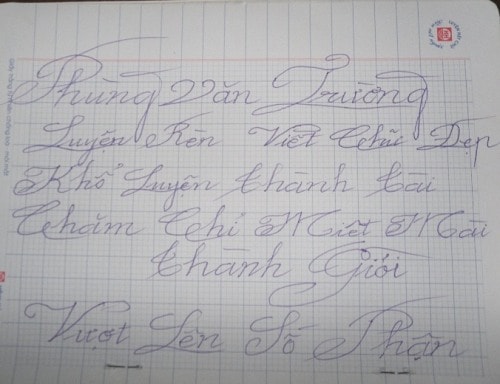 Phùng Văn Trường
Luyện Rèn Viết Chữ Đẹp
Khổ Luyện thành tài
Chăm Chỉ Miết Mài
thành Giỏi
Vượt Lên Số Phận